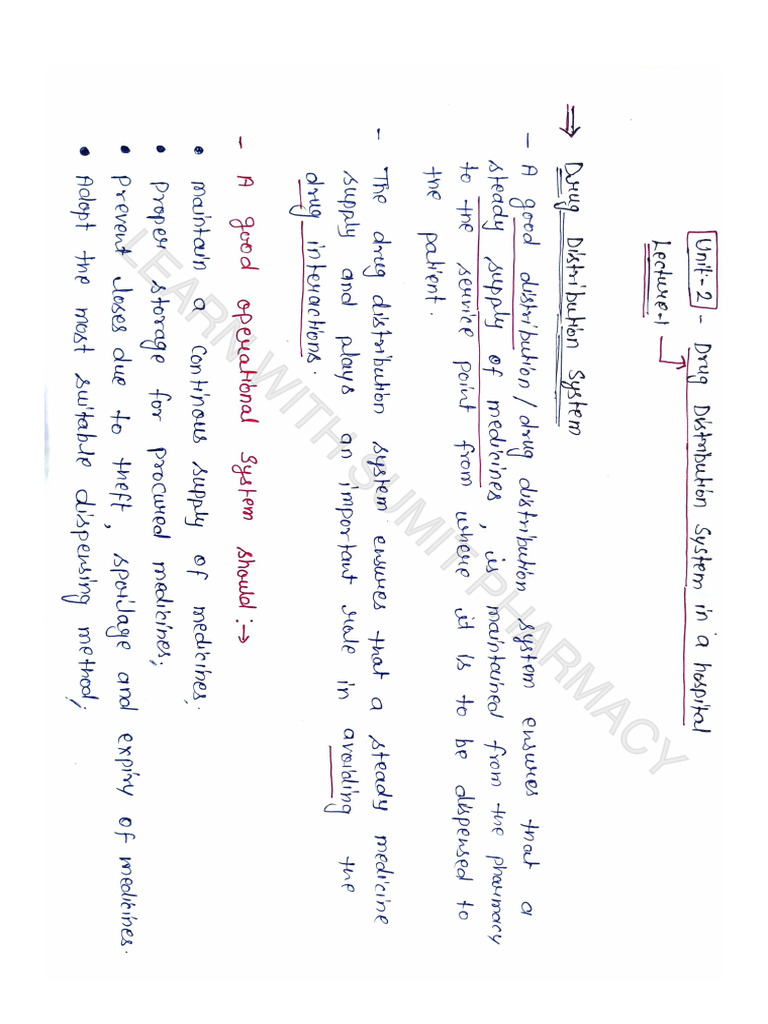 Unit-2 - Drug Distribution System in a hospital
Lecture-1
⇒ Drug Distribution System
- A good distribution/drug distribution system ensures that a
steady supply of medicines, is maintained from the pharmacy
to the service point from where it is to be dispensed to
the patient.
- The drug distribution system ensures that a steady medicine
supply and plays an important role in avoiding the
drug interactions.
- A good operational System should:→
• maintain a continous supply of medicines;
• Proper storage for procured medicines;
• Prevent loses due to theft, spoilage and expiry of medicines.
• Adopt the most suitable dispensing method;
LEARN WITH SUMIT PHARMACY